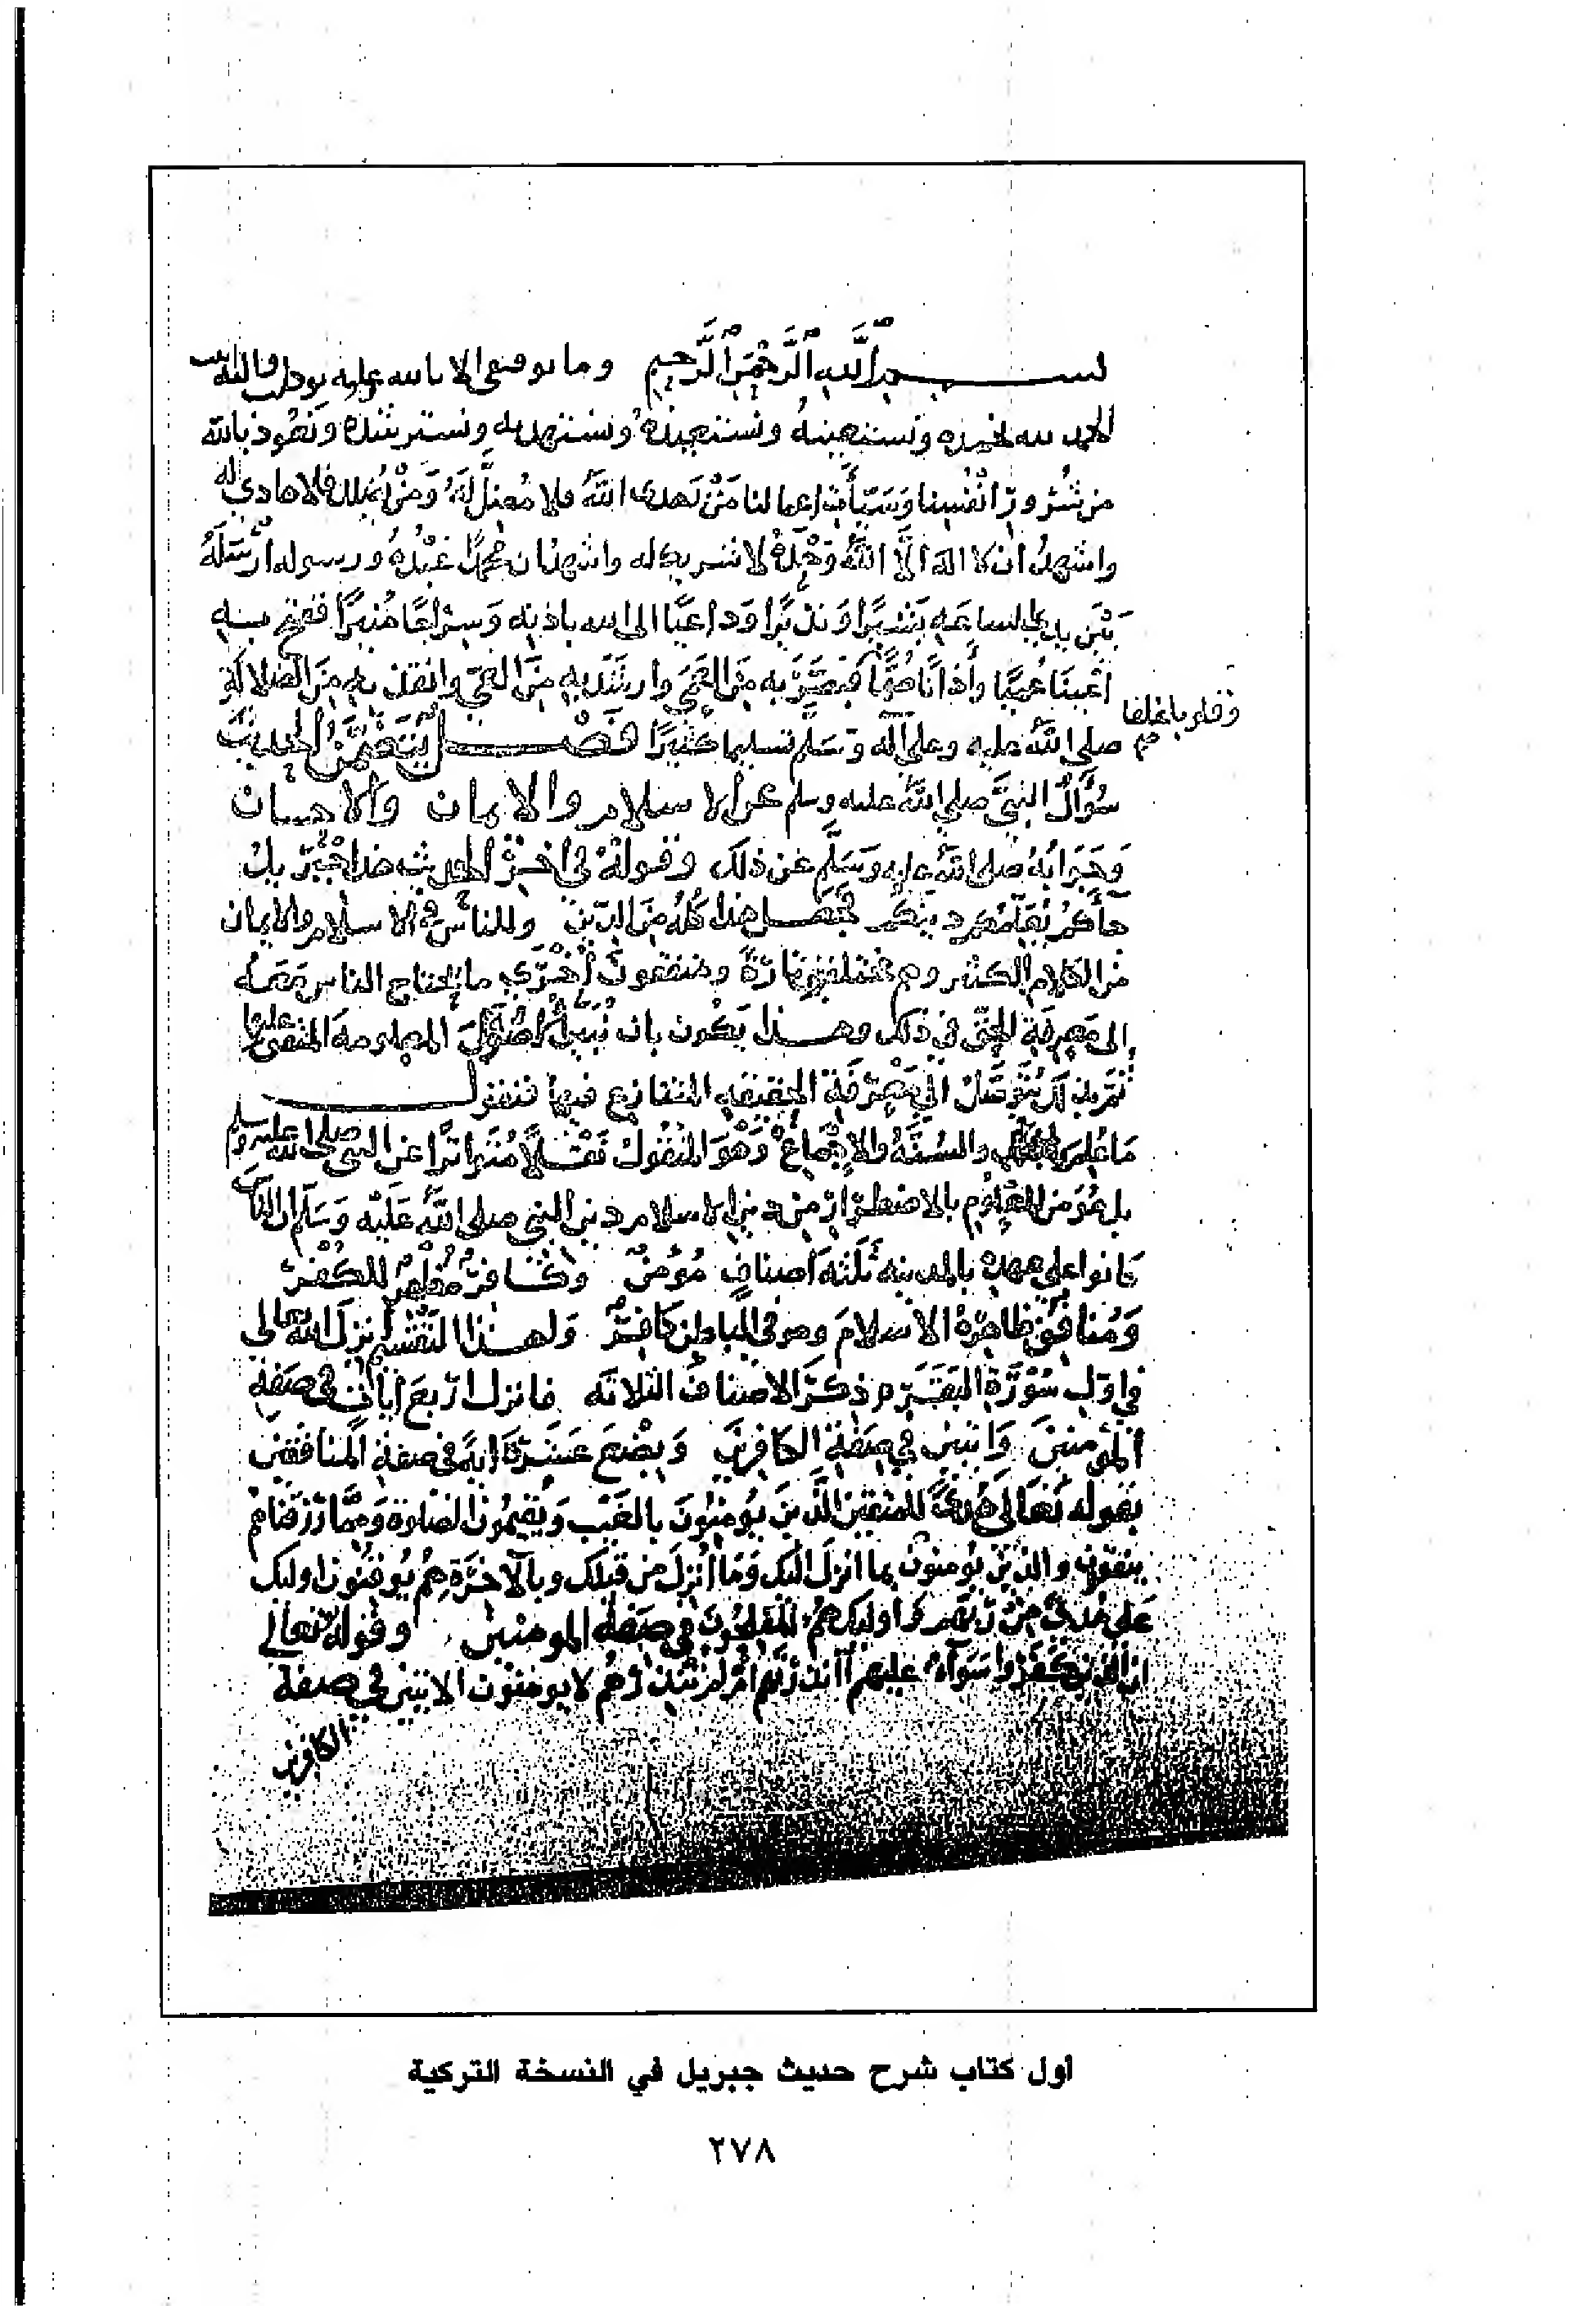 بسم الله الرحمن الرحيم وما توفيقي الا بالله عليه توكلت واليه انيب
الحمد لله نحمده ونستعينه ونستهديه ونسترشده ونعوذ بالله
من شرور انفسنا وسيأت اعمالنا من يهدى الله فلا مضل له ومن يضلل فلا هادي له
واشهد ان لا اله الا الله وحده لا شريك له واشهد ان محمدا عبده ورسوله ارسله
بين يدي الساعه بشيرا ونذيرا وداعيا الى الله باذنه وسراجا منيرا ففتح به
اعينا عميا وأذانا صما فبصر به من العمى وارشد به من الغي وانقذ به من الضلالة
وقلوبا غلفا
صلى الله عليه وعلى آله وسلم تسليما كثيرا فصل يتضمن الحديث
سؤال النبي صلى الله عليه وسلم عن الاسلام والايمان والاحسان
وجوابه صلى الله عليه وسلم عن ذلك وقوله في اخر الحديث هذا جبريل
جآكم يعلمكم دينكم فجعل هذا كله من الدين وللناس في الاسلام والايمان
من الكلام الكثير وهم مختلفين تارة ومتفقون أخرى ما يحتاج الناس معه
الى معرفة الحق في ذلك وهذا يكون بان نبين الاصول المعلومة المتفق عليها
ثم بذلك نتوصل الى معرفة الحقيقه المتنازع فيها فنقول
ما علم والسنه والاجماع وهو المنقول نقلا متواترا عن النبي صلى الله عليه وسلم
بل هو من المعلوم بالاضطرار من دين الاسلام دين النبي صلى الله عليه وسلم ان الناس
كانوا على عهده بالمدينه ثلثه اصناف مؤمن وكافر مظهر للكفر
ومنافق ظاهره الاسلام وهو في الباطن كافر ولهذا التقسيم انزل الله تعالى
في اول سورة البقرة ذكر الاصناف الثلاثه فانزل اربع ايات في صفة
المؤمنين واثنين في صفة الكافرين وبضع عشرة اية في صفة المنافقين
بقوله تعالى هدى للمتقين الذين يؤمنون بالغيب ويقيمون الصلوة ومما رزقناهم
ينفقون والذين يؤمنون بما انزل اليك وما انزل من قبلك وبالآخرة هم يوقنون اوليك
على هدى من ربهم واوليك هم المفلحون في صفة المومنين وقوله تعالى
ان الذين كفروا سوآء عليهم أأنذرتهم ام لم تنذرهم لا يومنون الاثنين في صفة
الكافرين
أول كتاب شرح حديث جبريل في النسخة التركية
٢٧٨